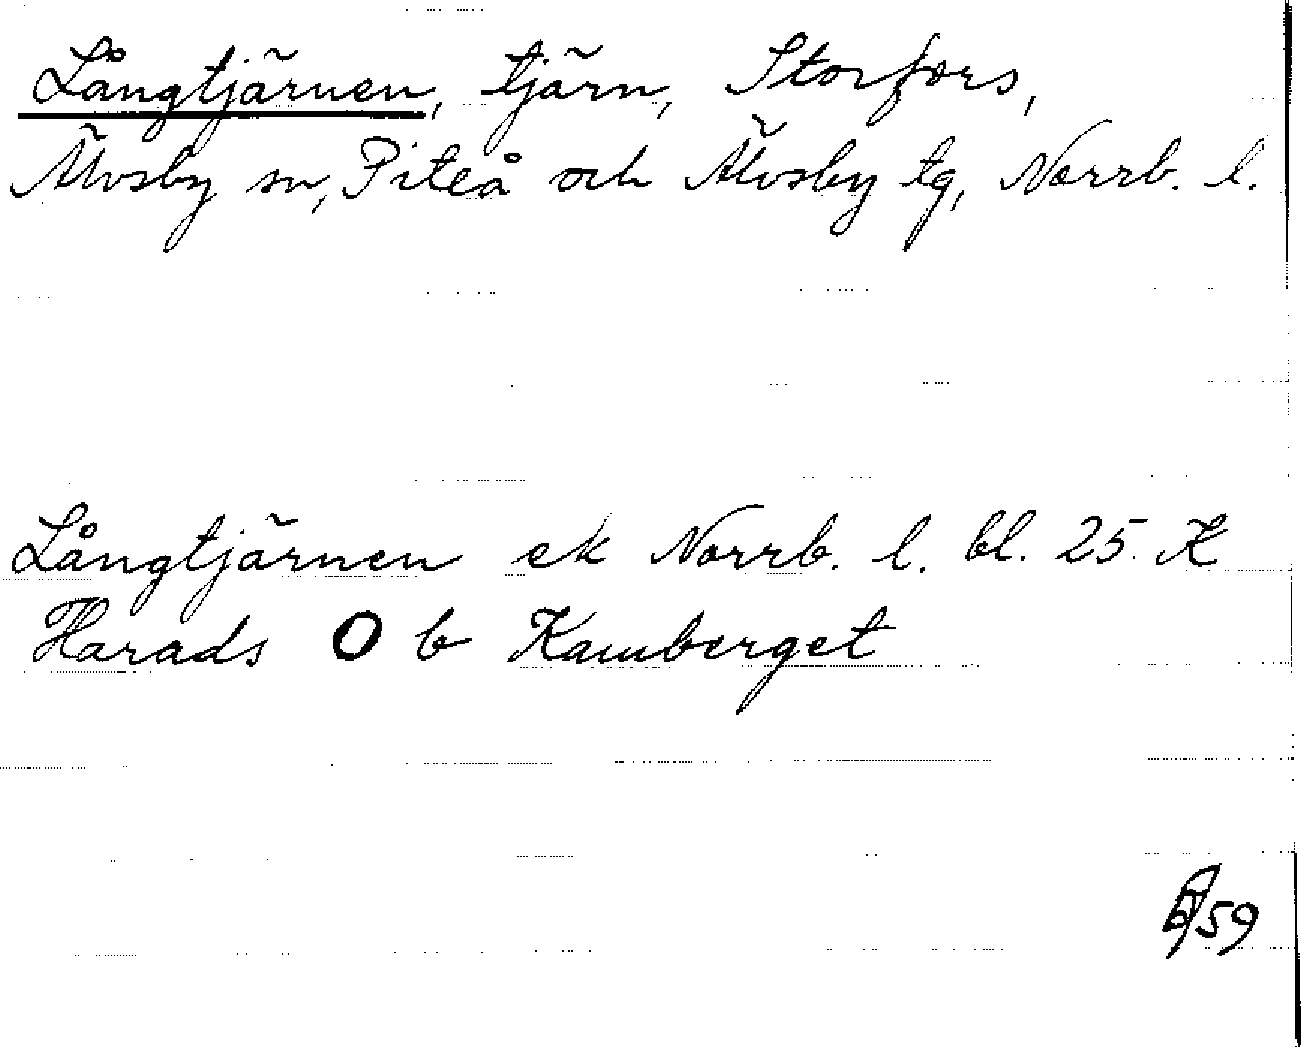 Långtjärnen, tjärn, Storfors,
Älvsby sn, Piteå och Älvsby tg, Norrb. l.
Långtjärnen ek Norrb. l. bl. 25. K
Harads O b Kamberget
59